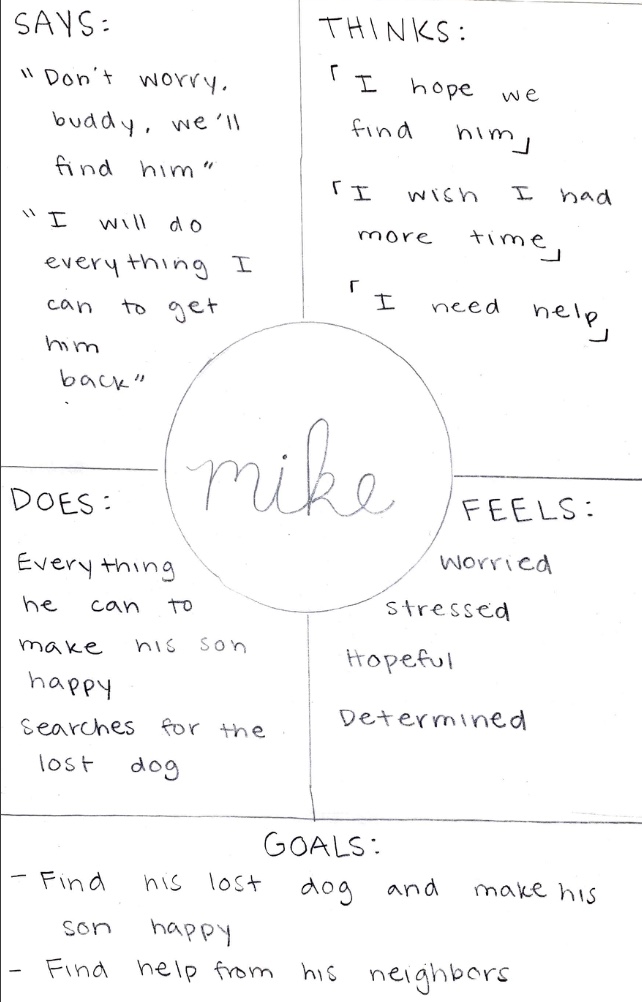 SAYS:
"Don't worry,
buddy, we'll
find him"
"I will do
everything I
can to get
him
back"
THINKS:
「I hope we
find him」
「I wish I had
more time」
「I need help」
mike
DOES:
Everything
he can to
make his son
happy
searches for the
lost dog
FEELS:
Worried
Stressed
Hopeful
Determined
GOALS:
- Find his lost dog and make his
son happy
- Find help from his neighbors